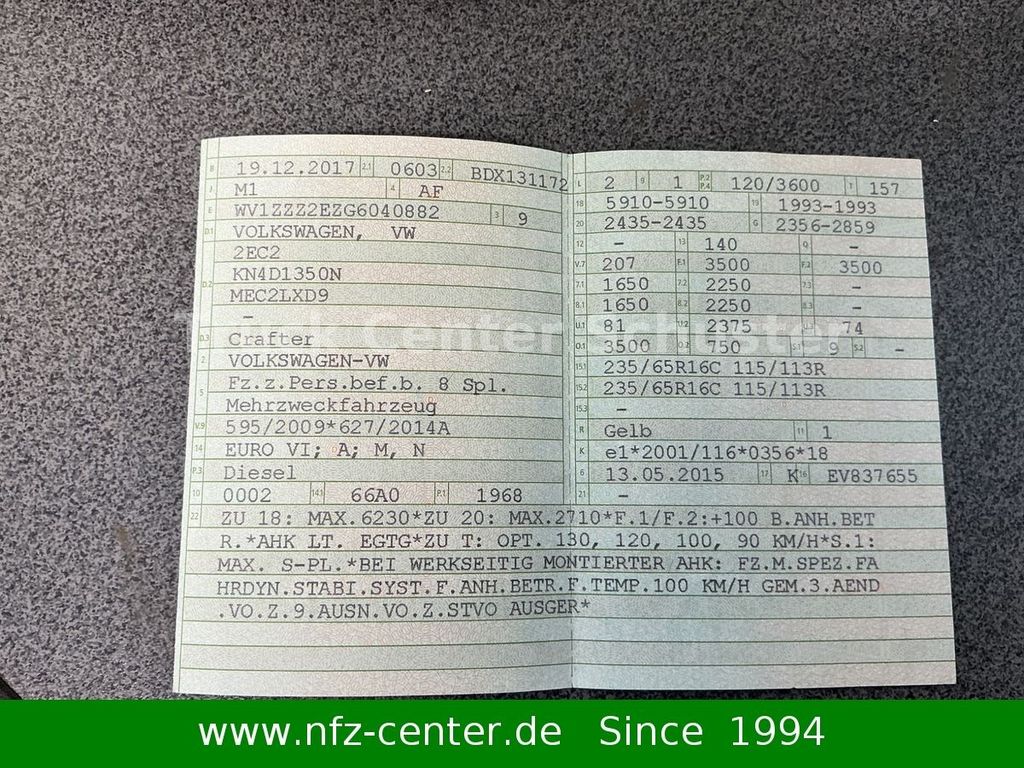 B 19.12.2017 2.1 0603 2.2 BDX131172
J M1 4 AF
E WV1ZZZ2EZG6040882 3 9
D.1 VOLKSWAGEN, VW
2EC2
D.2 KN4D1350N
MEC2LXD9
–
D.3 Crafter
2 VOLKSWAGEN-VW
5 Fz.z.Pers.bef.b. 8 Spl.
Mehrzweckfahrzeug
V.9 595/2009*627/2014A
14 EURO VI; A; M, N
P.3 Diesel
10 0002 14.1 66A0 P.1 1968
L 2 9 1 P.2 P.4 120/3600 T 157
18 5910-5910 19 1993-1993
20 2435-2435 G 2356-2859
12 – 13 140 Q –
V.7 207 F.1 3500 F.2 3500
7.1 1650 7.2 2250 7.3 –
8.1 1650 8.2 2250 8.3 –
U.1 81 U.2 2375 U.3 74
O.1 3500 O.2 750 S.1 9 S.2 –
15.1 235/65R16C 115/113R
15.2 235/65R16C 115/113R
15.3 –
R Gelb 11 1
K e1*2001/116*0356*18
6 13.05.2015 17 K 16 EV837655
21 –
22 ZU 18: MAX.6230*ZU 20: MAX.2710*F.1/F.2:+100 B.ANH.BET
R.*AHK LT. EGTG*ZU T: OPT. 130, 120, 100, 90 KM/H*S.1:
MAX. S-PL.*BEI WERKSEITIG MONTIERTER AHK: FZ.M.SPEZ.FA
HRDYN.STABI.SYST.F.ANH.BETR.F.TEMP.100 KM/H GEM.3.AEND
.VO.Z.9.AUSN.VO.Z.STVO AUSGER*
www.nfz-center.de Since 1994